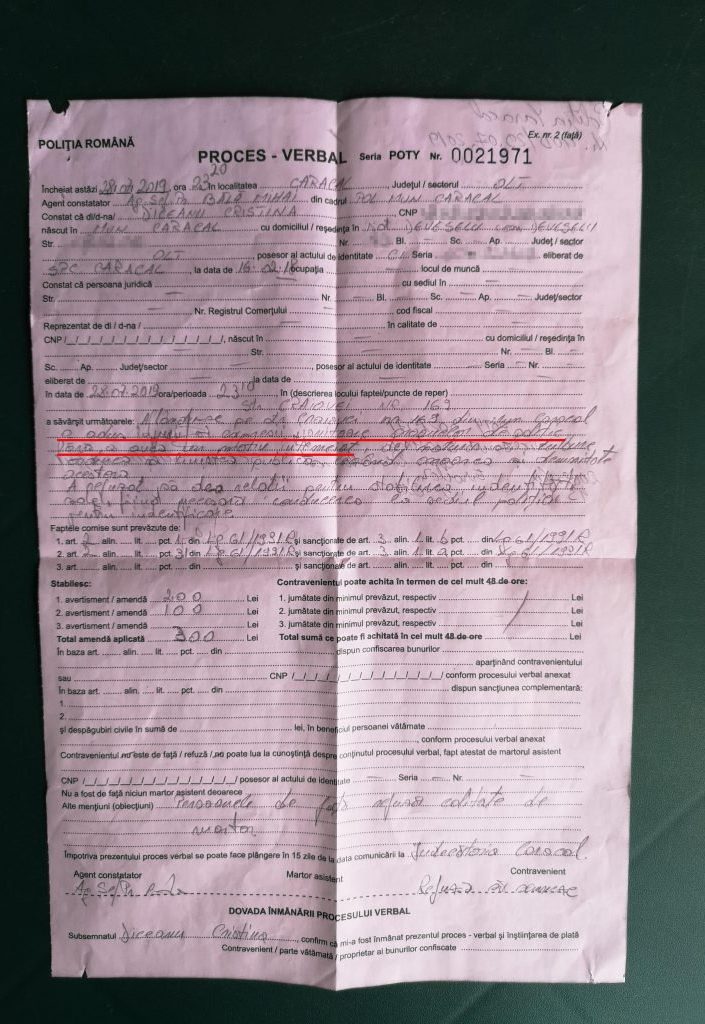 POLIŢIA ROMÂNĂ
Ex. nr. 2 (faţă)
PROCES - VERBAL Seria POTY Nr. 0021971
Încheiat astăzi 28.07.2019, ora 23 20 în localitatea CARACAL, Judeţul / sectorul OLT
Agent constatator Ag. Sef. BĂLĂ MIHAI din cadrul POL MUN CARACAL
Constat că dl/d-na/ DICEANU CRISTINA, CNP
născut în MUN CARACAL cu domiciliul / reşedinţa în DEVESELU DEVESELU
Str. Nr. Bl. Sc. Ap. Judeţ / sector
OLT, posesor al actului de identitate C.I. Seria eliberat de
SPC CARACAL, la data de 16.02.18, ocupaţia locul de muncă
Constat că persoana juridică cu sediul în
Str. Nr. Bl. Sc. Ap. Judeţ/sector
Nr. Registrul Comerţului, cod fiscal
Reprezentat de dl / d-na / în calitate de
CNP /_/_/_/_/_/_/_/_/_/_/_/_/_/, născut în cu domiciliul / reşedinţa în
Str. Nr. Bl.
Sc. Ap. Judeţ/sector, posesor al actului de identitate Seria Nr.
eliberat de la data de
în data de 28.07.2019 ora/perioada 23 10, în (descrierea locului faptei/puncte de reper)
Str CRAIOVEI NR 169
a săvârşit următoarele: pe str Craiovei nr 169 din mun Caracal
a adus organelor de politie
fara a avea un motiv intemeiat de natura sa tulbure
ordinea si linistea publica
acestora
A refuzat sa dea relatii pentru stabilirea identitatii
conducerea la sediul politiei
pentru identificare
Faptele comise sunt prevăzute de:
1. art. 2 alin. lit. pct. 1 din Lg 61/1991R şi sancţionate de art. 3 alin. 1 lit. b pct. din Lg 61/1991R
2. art. 2 alin. 1 lit. pct. 31 din Lg 61/1991R şi sancţionate de art. 3 alin. 1 lit. a pct. din Lg 61/1991R
3. art. alin. lit. pct. din şi sancţionate de art. alin. lit. pct. din
Stabilesc: Contravenientul poate achita în termen de cel mult 48 de ore:
1. avertisment / amendă 200 Lei 1. jumătate din minimul prevăzut, respectiv Lei
2. avertisment / amendă 100 Lei 2. jumătate din minimul prevăzut, respectiv Lei
3. avertisment / amendă Lei 3. jumătate din minimul prevăzut, respectiv Lei
Total amendă aplicată 300 Lei Total sumă ce poate fi achitată în cel mult 48 de ore Lei
În baza art. alin. lit. pct. din dispun confiscarea bunurilor
aparţinând contravenientului
sau CNP /_/_/_/_/_/_/_/_/_/_/_/_/_/ conform procesului verbal anexat
În baza art. alin. lit. pct. din dispun sancţiunea complementară:
1.
2.
şi despăgubiri civile în sumă de lei, în beneficiul persoanei vătămate
, conform procesului verbal anexat
Contravenientul nu este de faţă / refuză / nu poate lua la cunoştinţă despre conţinutul procesului verbal, fapt atestat de martorul asistent
CNP /_/_/_/_/_/_/_/_/_/_/_/_/_/ posesor al actului de identitate Seria Nr.
Nu a fost de faţă niciun martor asistent deoarece
Alte menţiuni (obiecţiuni) Persoanele de fata refuza calitate de
martor
Împotriva prezentului proces verbal se poate face plângere în 15 zile de la data comunicării la Judecatoria Caracal
Agent constatator Martor asistent Contravenient
Refuza sa semneze
DOVADA ÎNMÂNĂRII PROCESULUI VERBAL
Subsemnatul Diceanu Cristina, confirm că mi-a fost înmânat prezentul proces - verbal şi înştiinţarea de plată
Contravenient / parte vătămată / proprietar al bunurilor confiscate